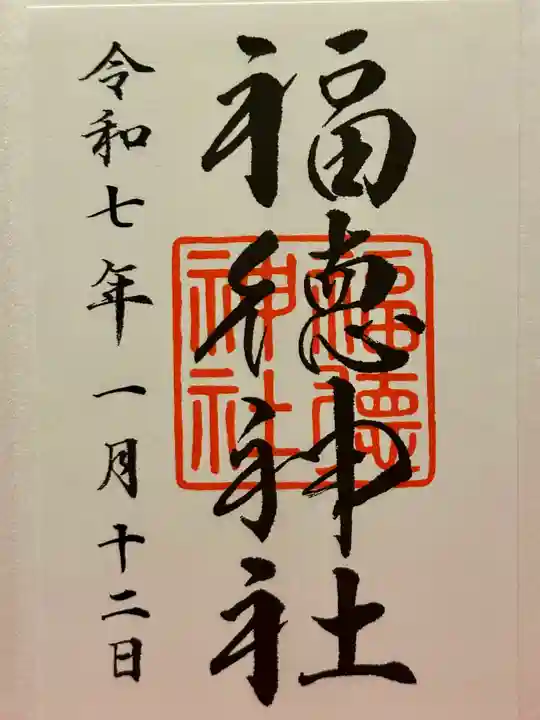 福徳神社
福徳神社
令和七年一月十二日